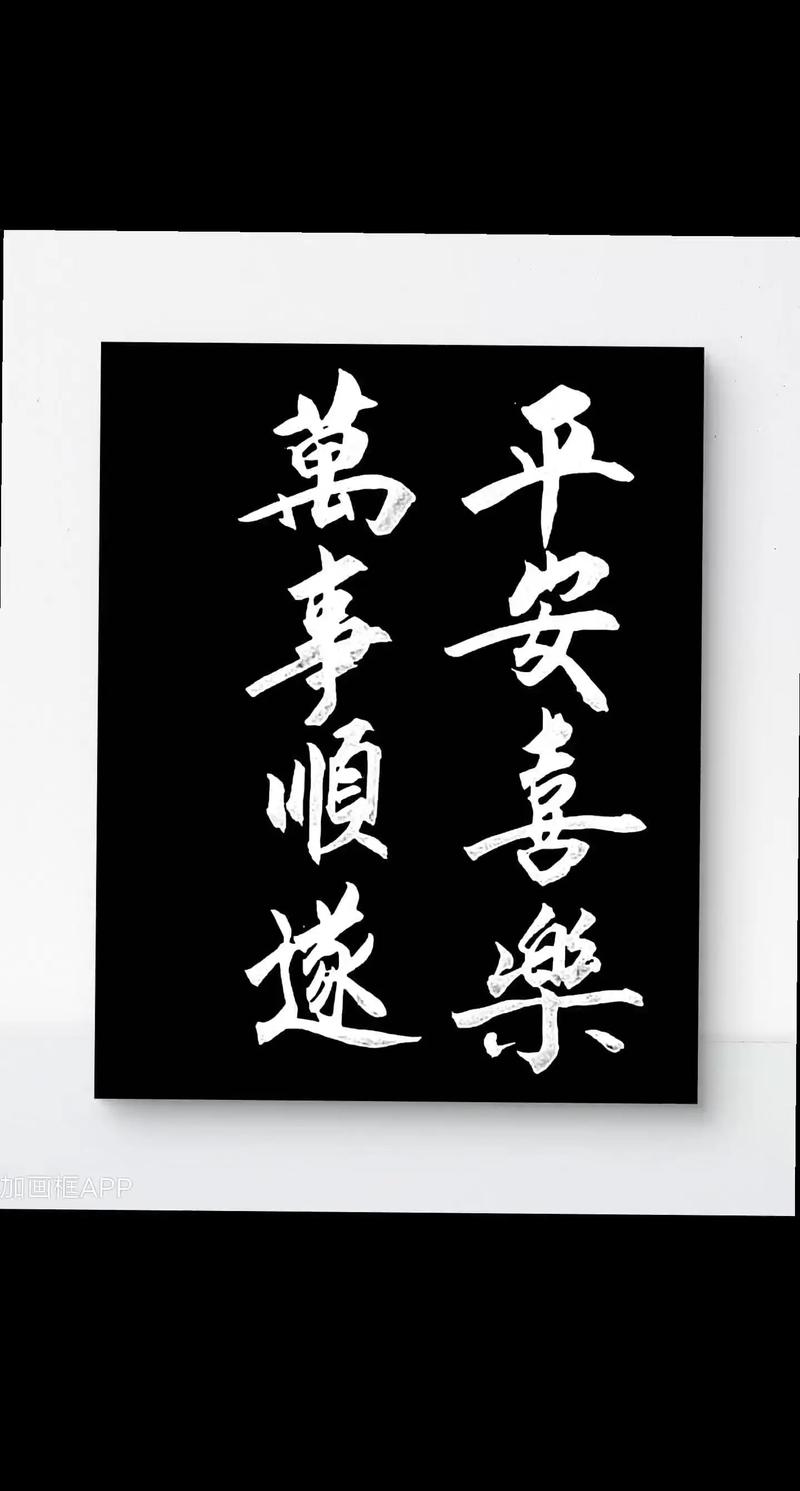 平安喜樂
萬事順遂
加画框APP